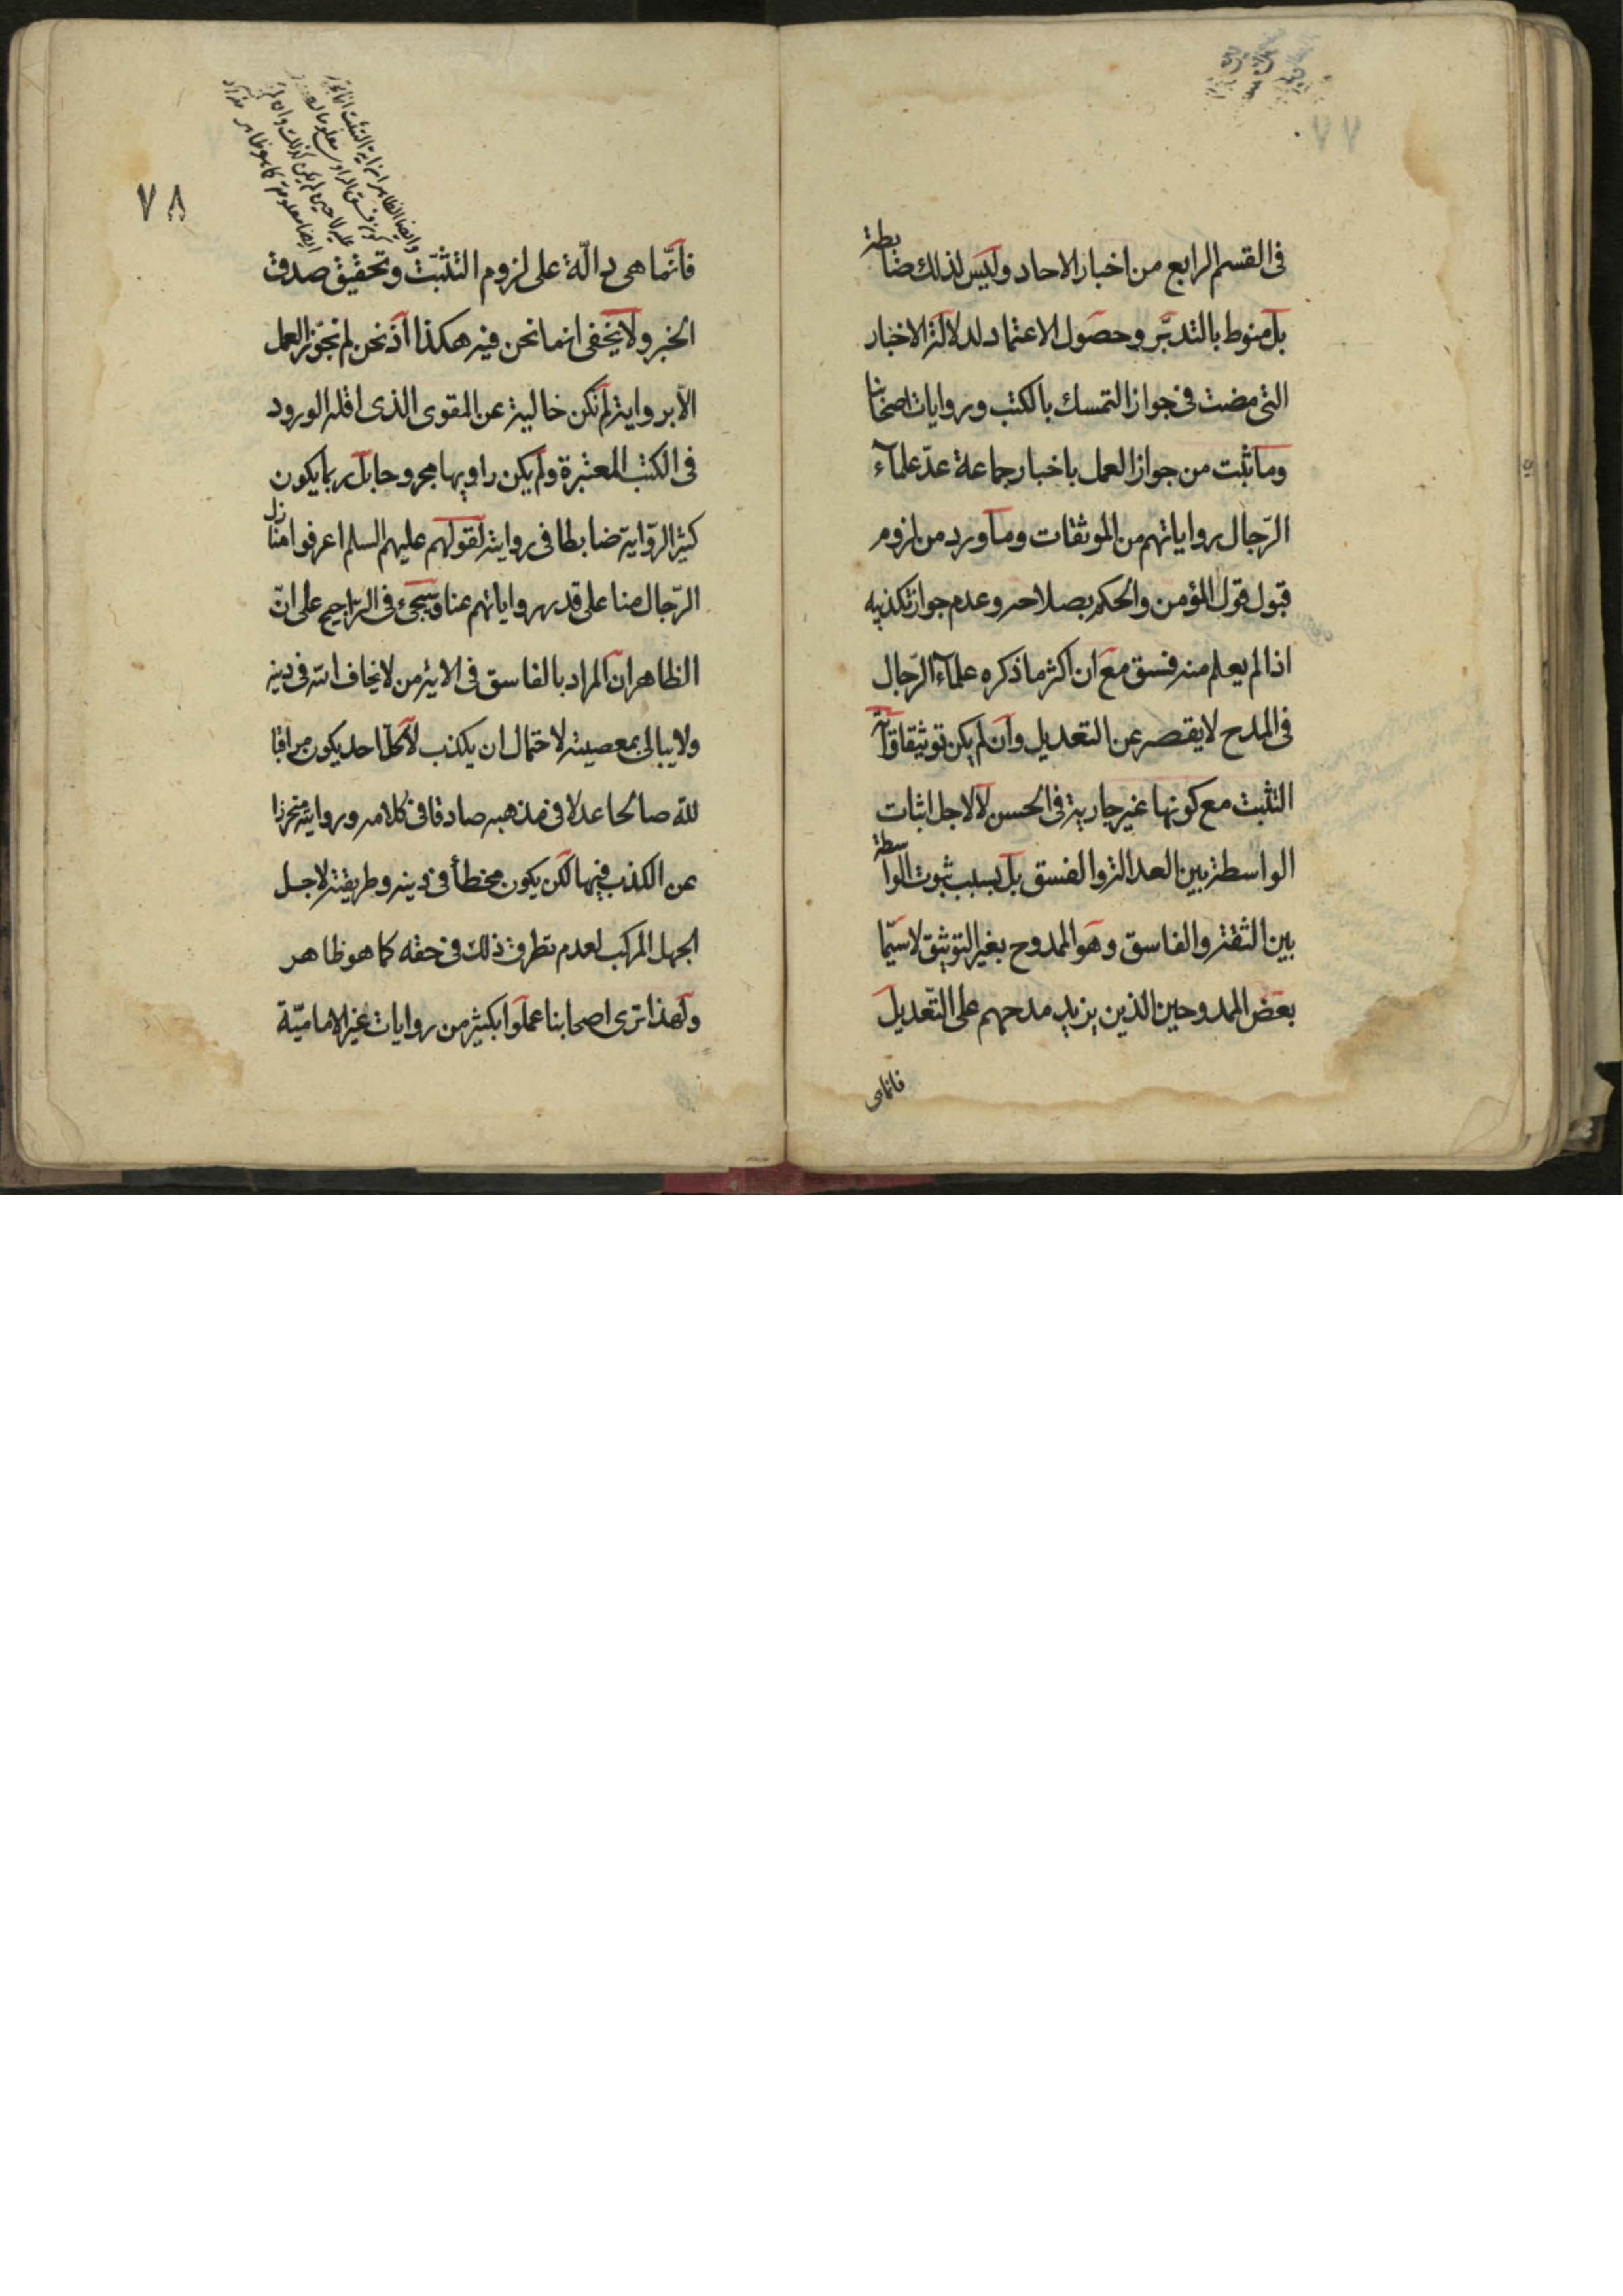 ٧٧
فى القسم الرابع من اخبار الاحاد وليس لذلك ضابطة
بل منوط بالتدبّر وحصول الاعتماد لدلالة الاخبار
التى مضت فى جواز التمسك بالكتب وروايات اصحابنا
وما ثبت من جواز العمل باخبار جماعة عدّ علمآء
الرّجال رواياتهم من الموثقات وما ورد من لزوم
قبول قول المؤمن والحكم بصلاحه وعدم جواز تكذيبه
اذا لم يعلم منه فسق مع ان اكثر ما ذكره علمآء الرّجال
فى المدح لا يقصر عن التعديل وان لم يكن توثيقا وآية
التثبت مع كونها غير جارية فى الحسن لا لاجل اثبات
الواسطة بين العدالة والفسق بل بسبب ثبوت الواسطة
بين الثقة والفاسق وهو الممدوح بغير التوثيق لا سيّما
بعض الممدوحين الذين يزيد مدحهم على التّعديل
فانماهى
٧٨
وايضا الظاهر من اية التثبت
ايضا معلومة كما هو ظاهر
فانّما هى دالّة على لزوم التثبّت وتحقيق صدق
الخبر ولا يخفى ان ما نحن فيه هكذا اذ نحن لم نجوّز العمل
الّا برواية لم تكن خالية عن المقوى الذى اقله الورود
فى الكتب المعتبرة ولم يكن راويها مجروحا بل ربما يكون
كثير الرّواية ضابطا فى روايته لقولهم عليهم السلم اعرفوا منازل
الرّجال منا على قدر رواياتهم عنا وسيجىء فى التراجيح على انّ
الظاهر ان المراد بالفاسق فى الاية من لا يخاف الله فى دينه
ولا يبالى بمعصيته لاحتمال ان يكذب لا كلّ احد يكون مراقبا
لله صالحا عدلا فى مذهبه صادقا فى كلامه وروايته متحرزا
عن الكذب فيها لكن يكون مخطأ فى دينه وطريقته لاجل
الجهل المركب لعدم تطرق ذلك فى حقه كما هو ظاهر
ولهذا ترى اصحابنا عملوا بكثير من روايات غير الاماميّة